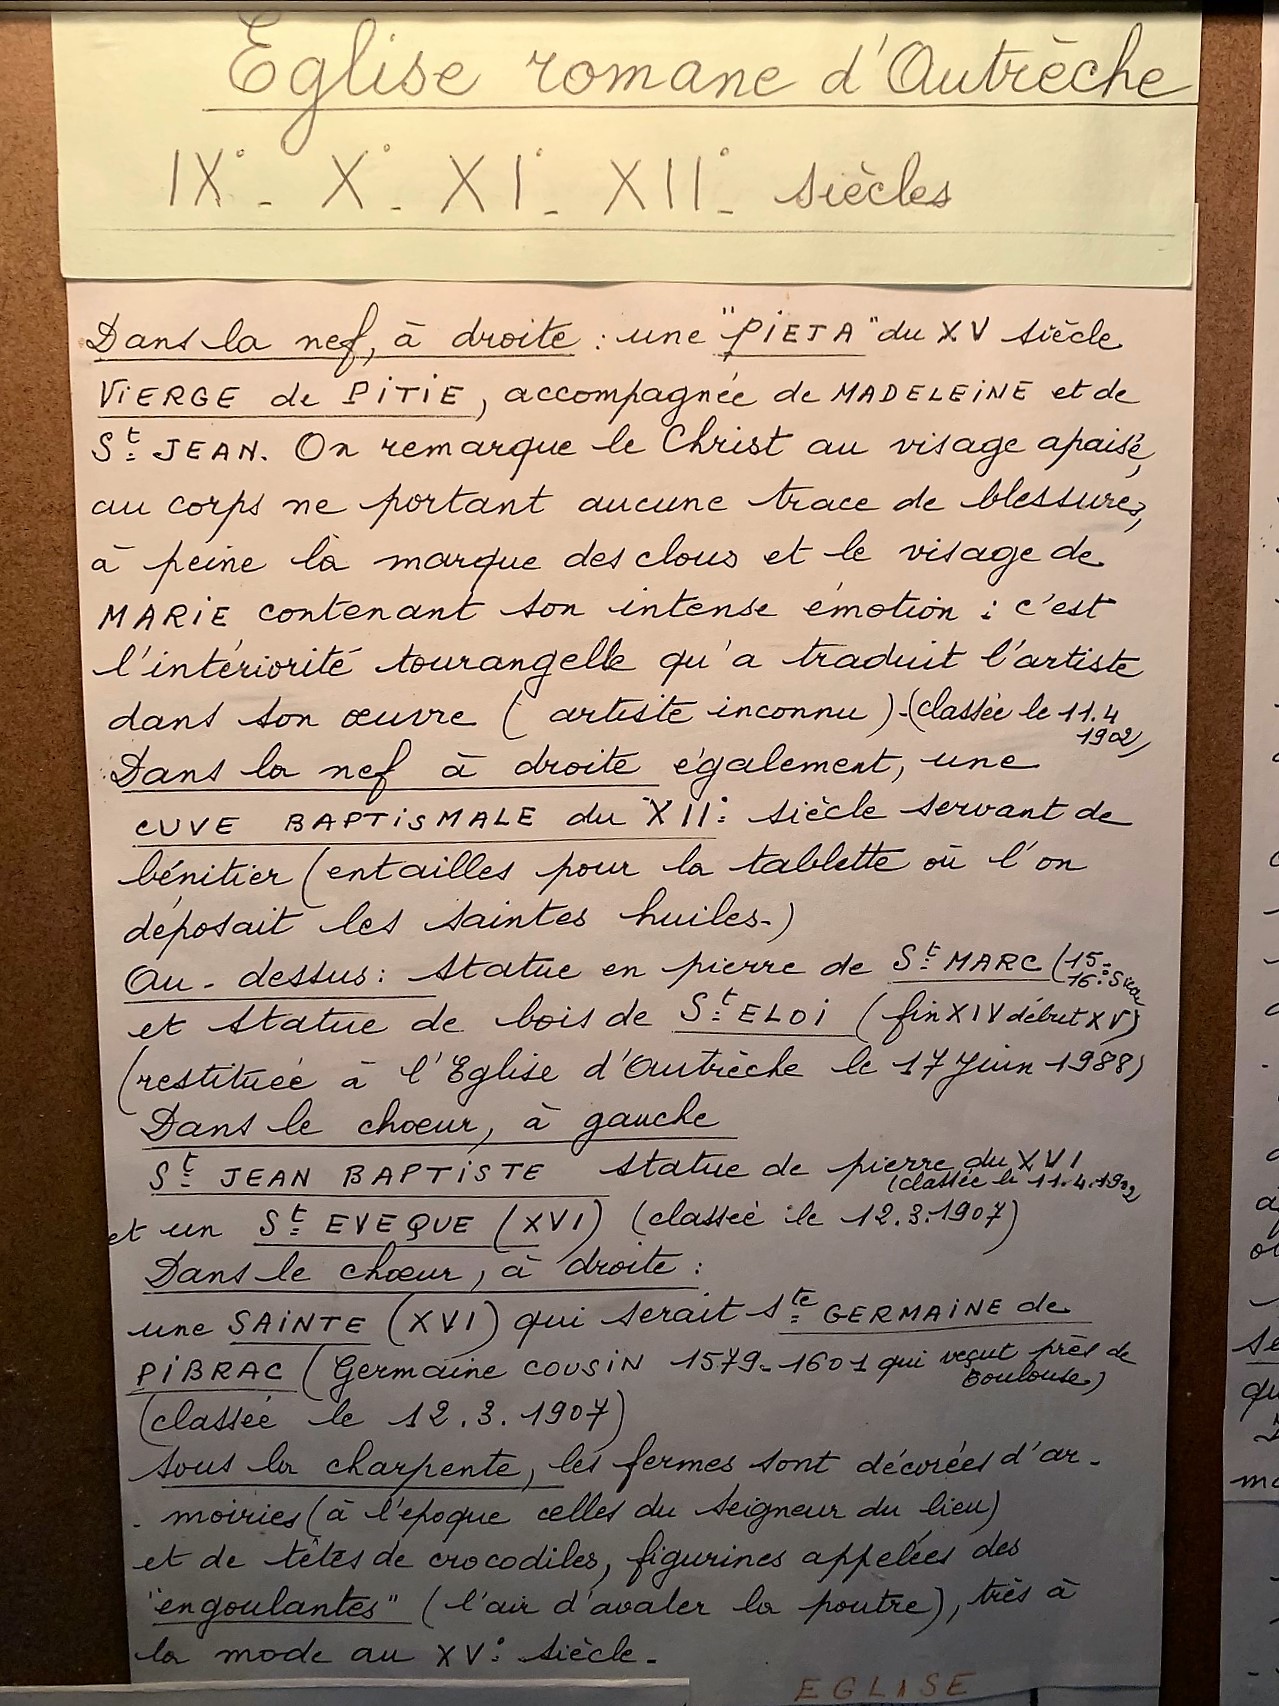 Eglise romane d'Autrèche
IX° - X° - XI° - XII° - siècles
Dans la nef, à droite : une "PIETA" du XV siècle
VIERGE de PITIE, accompagnée de MADELEINE et de
St JEAN. On remarque le Christ au visage apaisé,
au corps ne portant aucune trace de blessures,
à peine la marque des clous et le visage de
MARIE contenant son intense émotion : c'est
l'intériorité tourangelle qu'a traduit l'artiste
dans son œuvre (artiste inconnu). (classée le 11.4
1902)
Dans la nef à droite également, une
CUVE BAPTISMALE du XII° siècle servant de
bénitier (entailles pour la tablette où l'on
déposait les saintes huiles.)
Au-dessus : statue en pierre de St MARC (15-
16°
et statue de bois de St ELOI (fin XIV début XV)
(restituée à l'Eglise d'Autrèche le 17 Juin 1988)
Dans le chœur, à gauche
St JEAN BAPTISTE statue de pierre du XVI
(classée le 11.4.1902
et un St EVEQUE (XVI) (classée le 12.3.1907)
Dans le chœur, à droite :
une SAINTE (XVI) qui serait Ste GERMAINE de
PIBRAC (Germaine COUSIN 1579-1601 qui veçut près de
Toulouse)
(classée le 12.3.1907)
Sous la charpente, les fermes sont décorées d'ar-
- moiries (à l'époque celles du Seigneur du lieu)
et de têtes de crocodiles, figurines appelées des
"engoulantes" (l'air d'avaler la poutre), très à
la mode au XV° siècle.
EGLISE